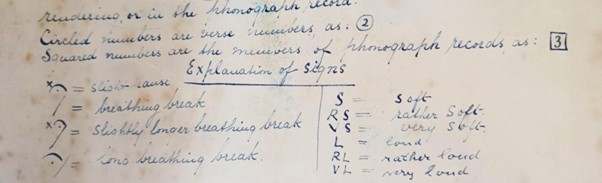 rendering, or in the phonograph record.
Circled numbers are verse numbers, as: ②
Squared numbers are the numbers of phonograph records, as: 3
Explanation of Signs
= slight pause
= breathing break
= slightly longer breathing break
= long breathing break.
S = Soft
RS = rather Soft.
VS = very Soft.
L = loud
RL = rather loud
VL = very loud